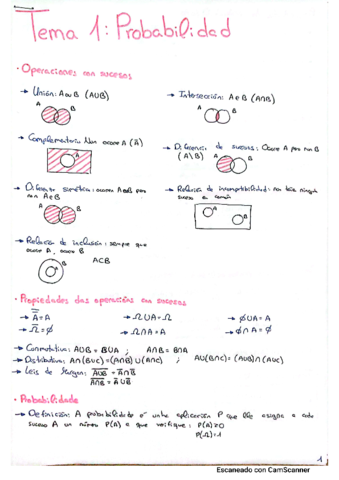 Tema 1: Probabilidad
· Operaciones con sucesos
→ Unión: A ou B (A∪B)
A B
→ Intersección: A e B (A∩B)
A B
→ Complementario: Non ocorre A (Ā)
A
→ Diferencia de sucesos: Ocorre A pero non B
(A\B)
A B
→ Diferencia simétrica: ocorre A ou B pero
non A e B
A B
→ Relación de incompatibilidad: non teñen ningún
suceso en común
A B
→ Relación de inclusión: sempre que
ocorre A, ocorre B
A B
A⊂B
· Propiedades das operacións con sucesos
→ A̿ = A
→ Ω∪A = Ω
→ ∅∪A = A
→ Ω̅ = ∅
→ Ω∩A = A
→ ∅∩A = ∅
→ Conmutativa: A∪B = B∪A ; A∩B = B∩A
→ Distributiva: A∩(B∪C) = (A∩B)∪(A∩C) ; A∪(B∩C) = (A∪B)∩(A∪C)
→ Leis de Morgan: A̅∪̅B̅ = A̅∩B̅
A̅∩̅B̅ = A̅∪B̅
· Probabilidade
→ Definición: A probabilidade é unha aplicación P que lle asigna a cada
suceso A un número P(A) e que verifique: P(A)≥0
P(Ω)=1
1
Escaneado con CamScanner